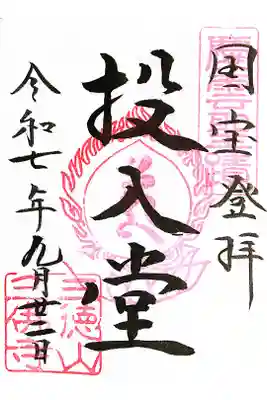 国宝登拝
投入堂
令和七年九月廿二日
三徳山
三佛寺